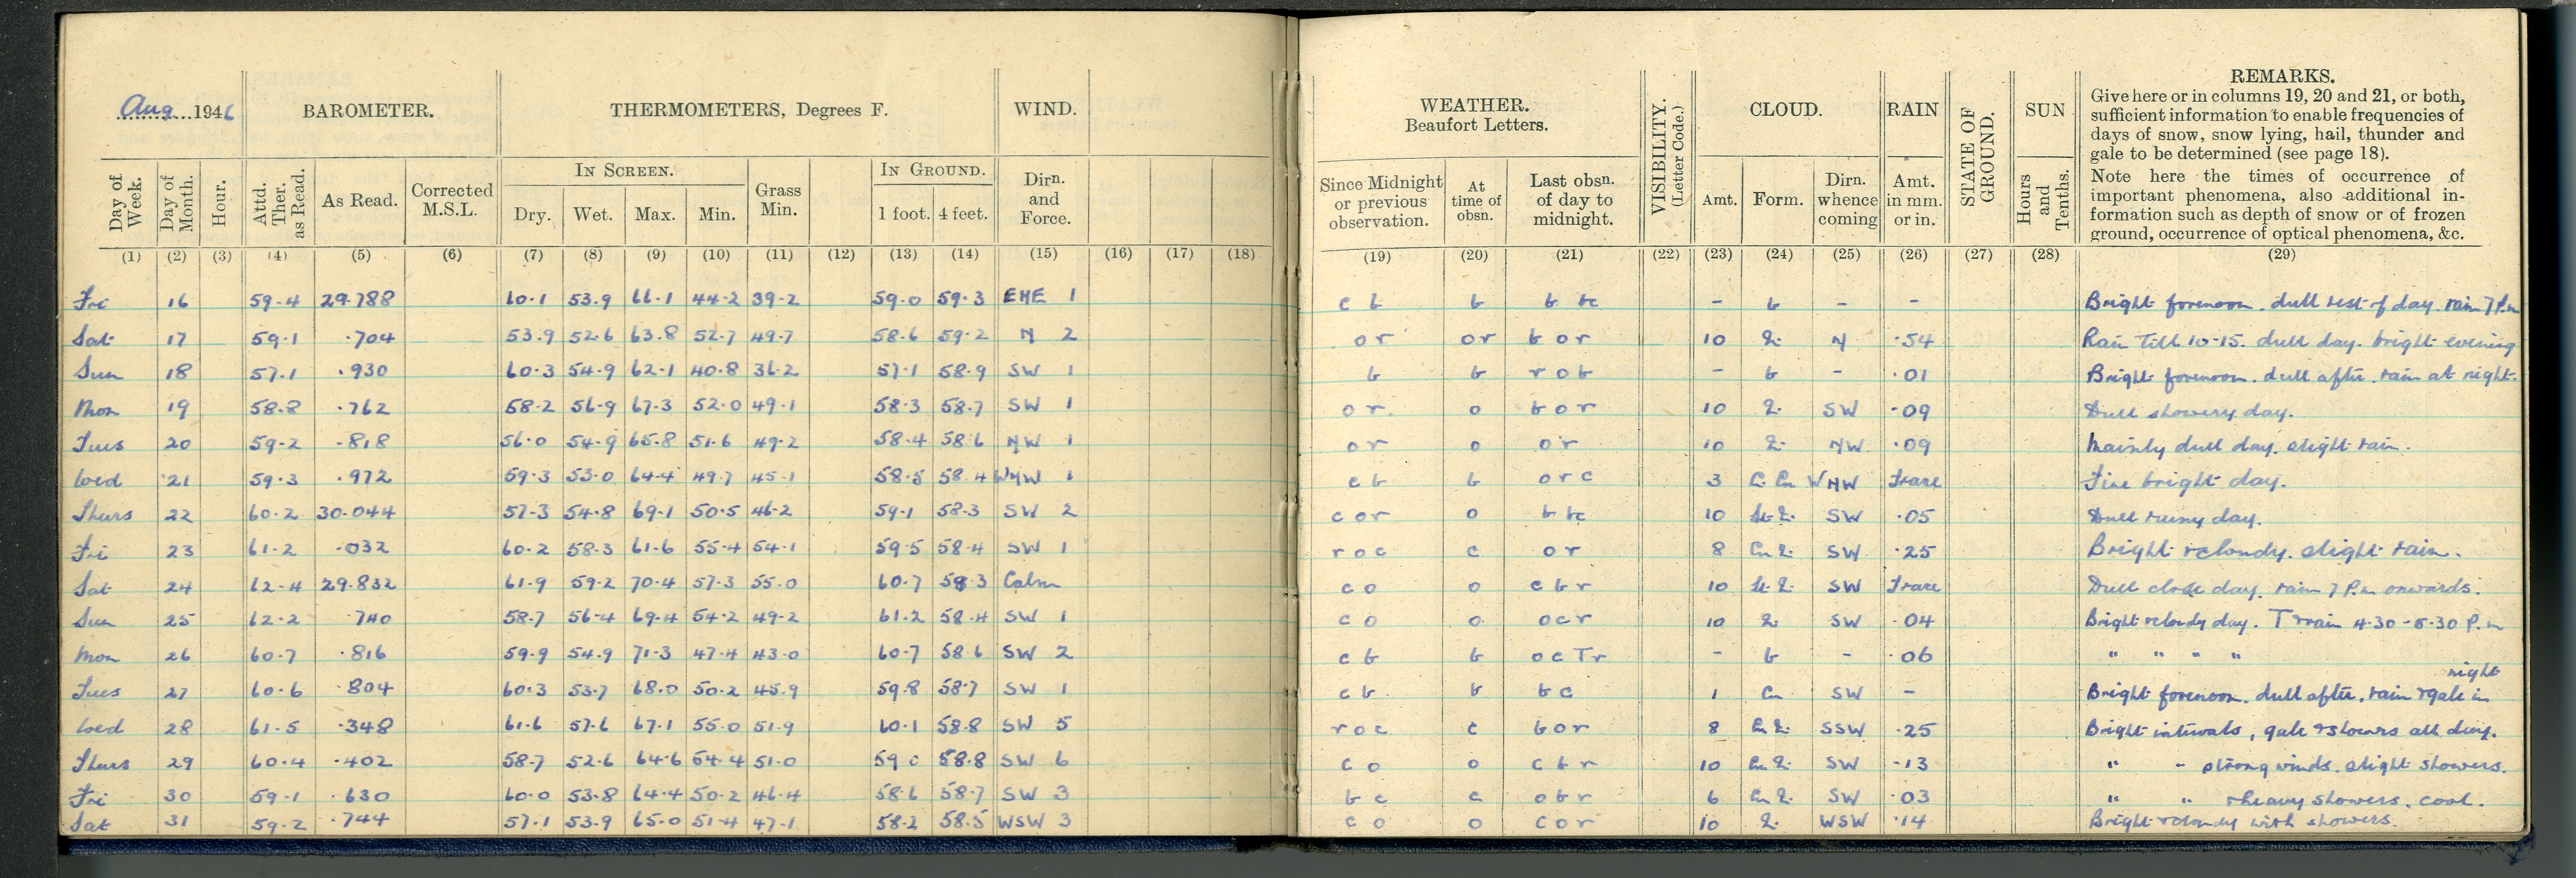 Aug 1946 BAROMETER. THERMOMETERS, Degrees F. WIND. WEATHER. Beaufort Letters. VISIBILITY. (Letter Code.) CLOUD. RAIN STATE OF GROUND. SUN REMARKS.
Give here or in columns 19, 20 and 21, or both,
sufficient information to enable frequencies of
days of snow, snow lying, hail, thunder and
gale to be determined (see page 18).
Note here the times of occurrence of
important phenomena, also additional in-
formation such as depth of snow or of frozen
ground, occurrence of optical phenomena, &c.
IN SCREEN. IN GROUND.
Day of Week. Day of Month. Hour. Attd. Ther. as Read. As Read. Corrected M.S.L. Dry. Wet. Max. Min. Grass Min. 1 foot. 4 feet. Dirn. and Force. Since Midnight or previous observation. At time of obsn. Last obsn. of day to midnight. Amt. Form. Dirn. whence coming Amt. in mm. or in. Hours and Tenths.
(1) (2) (3) (4) (5) (6) (7) (8) (9) (10) (11) (12) (13) (14) (15) (16) (17) (18) (19) (20) (21) (22) (23) (24) (25) (26) (27) (28) (29)
Fri 16 59.4 29.788 60.1 53.9 66.1 44.2 39.2 59.0 59.3 ENE 1 c b b b bc - b - - Bright forenoon. dull rest of day. rain 7 P.m
Sat 17 59.1 .704 53.9 52.6 63.8 52.7 49.7 58.6 59.2 N 2 o r o r b o r 10 N .54 Rain Till 10-15. dull day. bright evening
Sun 18 57.1 .930 60.3 54.9 62.1 40.8 36.2 57.1 58.9 SW 1 b b r o b - b - .01 Bright forenoon. dull after. rain at night.
Mon 19 58.8 .762 58.2 56.9 67.3 52.0 49.1 58.3 58.7 SW 1 o r o b o r 10 SW .09 Dull showery day.
Tues 20 59.2 .818 56.0 54.9 65.8 51.6 49.2 58.4 58.6 NW 1 o r o o r 10 NW .09 Mainly dull day. slight rain.
Wed 21 59.3 .972 59.3 53.0 64.4 49.7 45.1 58.5 58.4 WNW 1 c b b o r c 3 WNW Trace Fine bright day.
Thurs 22 60.2 30.044 57.3 54.8 69.1 50.5 46.2 59.1 58.3 SW 2 c o r o b bc 10 SW .05 Dull rainy day.
Fri 23 61.2 .032 60.2 58.3 61.6 55.4 54.1 59.5 58.4 SW 1 r o c c o r 8 SW .25 Bright & cloudy. slight rain.
Sat 24 62.4 29.832 61.9 59.2 70.4 57.3 55.0 60.7 58.3 Calm c o o c b r 10 SW Trace Dull close day. rain 7 P.m onwards.
Sun 25 62.2 .740 58.7 56.4 69.4 54.2 49.2 61.2 58.4 SW 1 c o o o c r 10 SW .04 Bright & cloudy day. T & rain 4.30-5.30 P.m
Mon 26 60.7 .816 59.9 54.9 71.3 47.4 43.0 60.7 58.6 SW 2 c b b o c T r - b - .06 " " " "
Tues 27 60.6 .804 60.3 53.7 68.0 50.2 45.9 59.8 58.7 SW 1 c b b b c 1 Cu SW - Bright forenoon. dull after. rain & gale in night
Wed 28 61.5 .348 61.6 57.6 67.1 55.0 51.9 60.1 58.8 SW 5 r o c c b o r 8 SSW .25 Bright intervals, gale & showers all day.
Thurs 29 60.4 .402 58.7 52.6 64.6 54.4 51.0 59 0 58.8 SW 6 c o o c b r 10 SW .13 " - strong winds. slight showers.
Fri 30 59.1 .630 60.0 53.8 64.4 50.2 46.4 58.6 58.7 SW 3 b c c o b r 6 SW .03 " " & heavy showers. cool.
Sat 31 59.2 .744 57.1 53.9 65.0 51.4 47.1 58.2 58.5 WSW 3 c o o c o r 10 WSW .14 Bright & cloudy with showers.